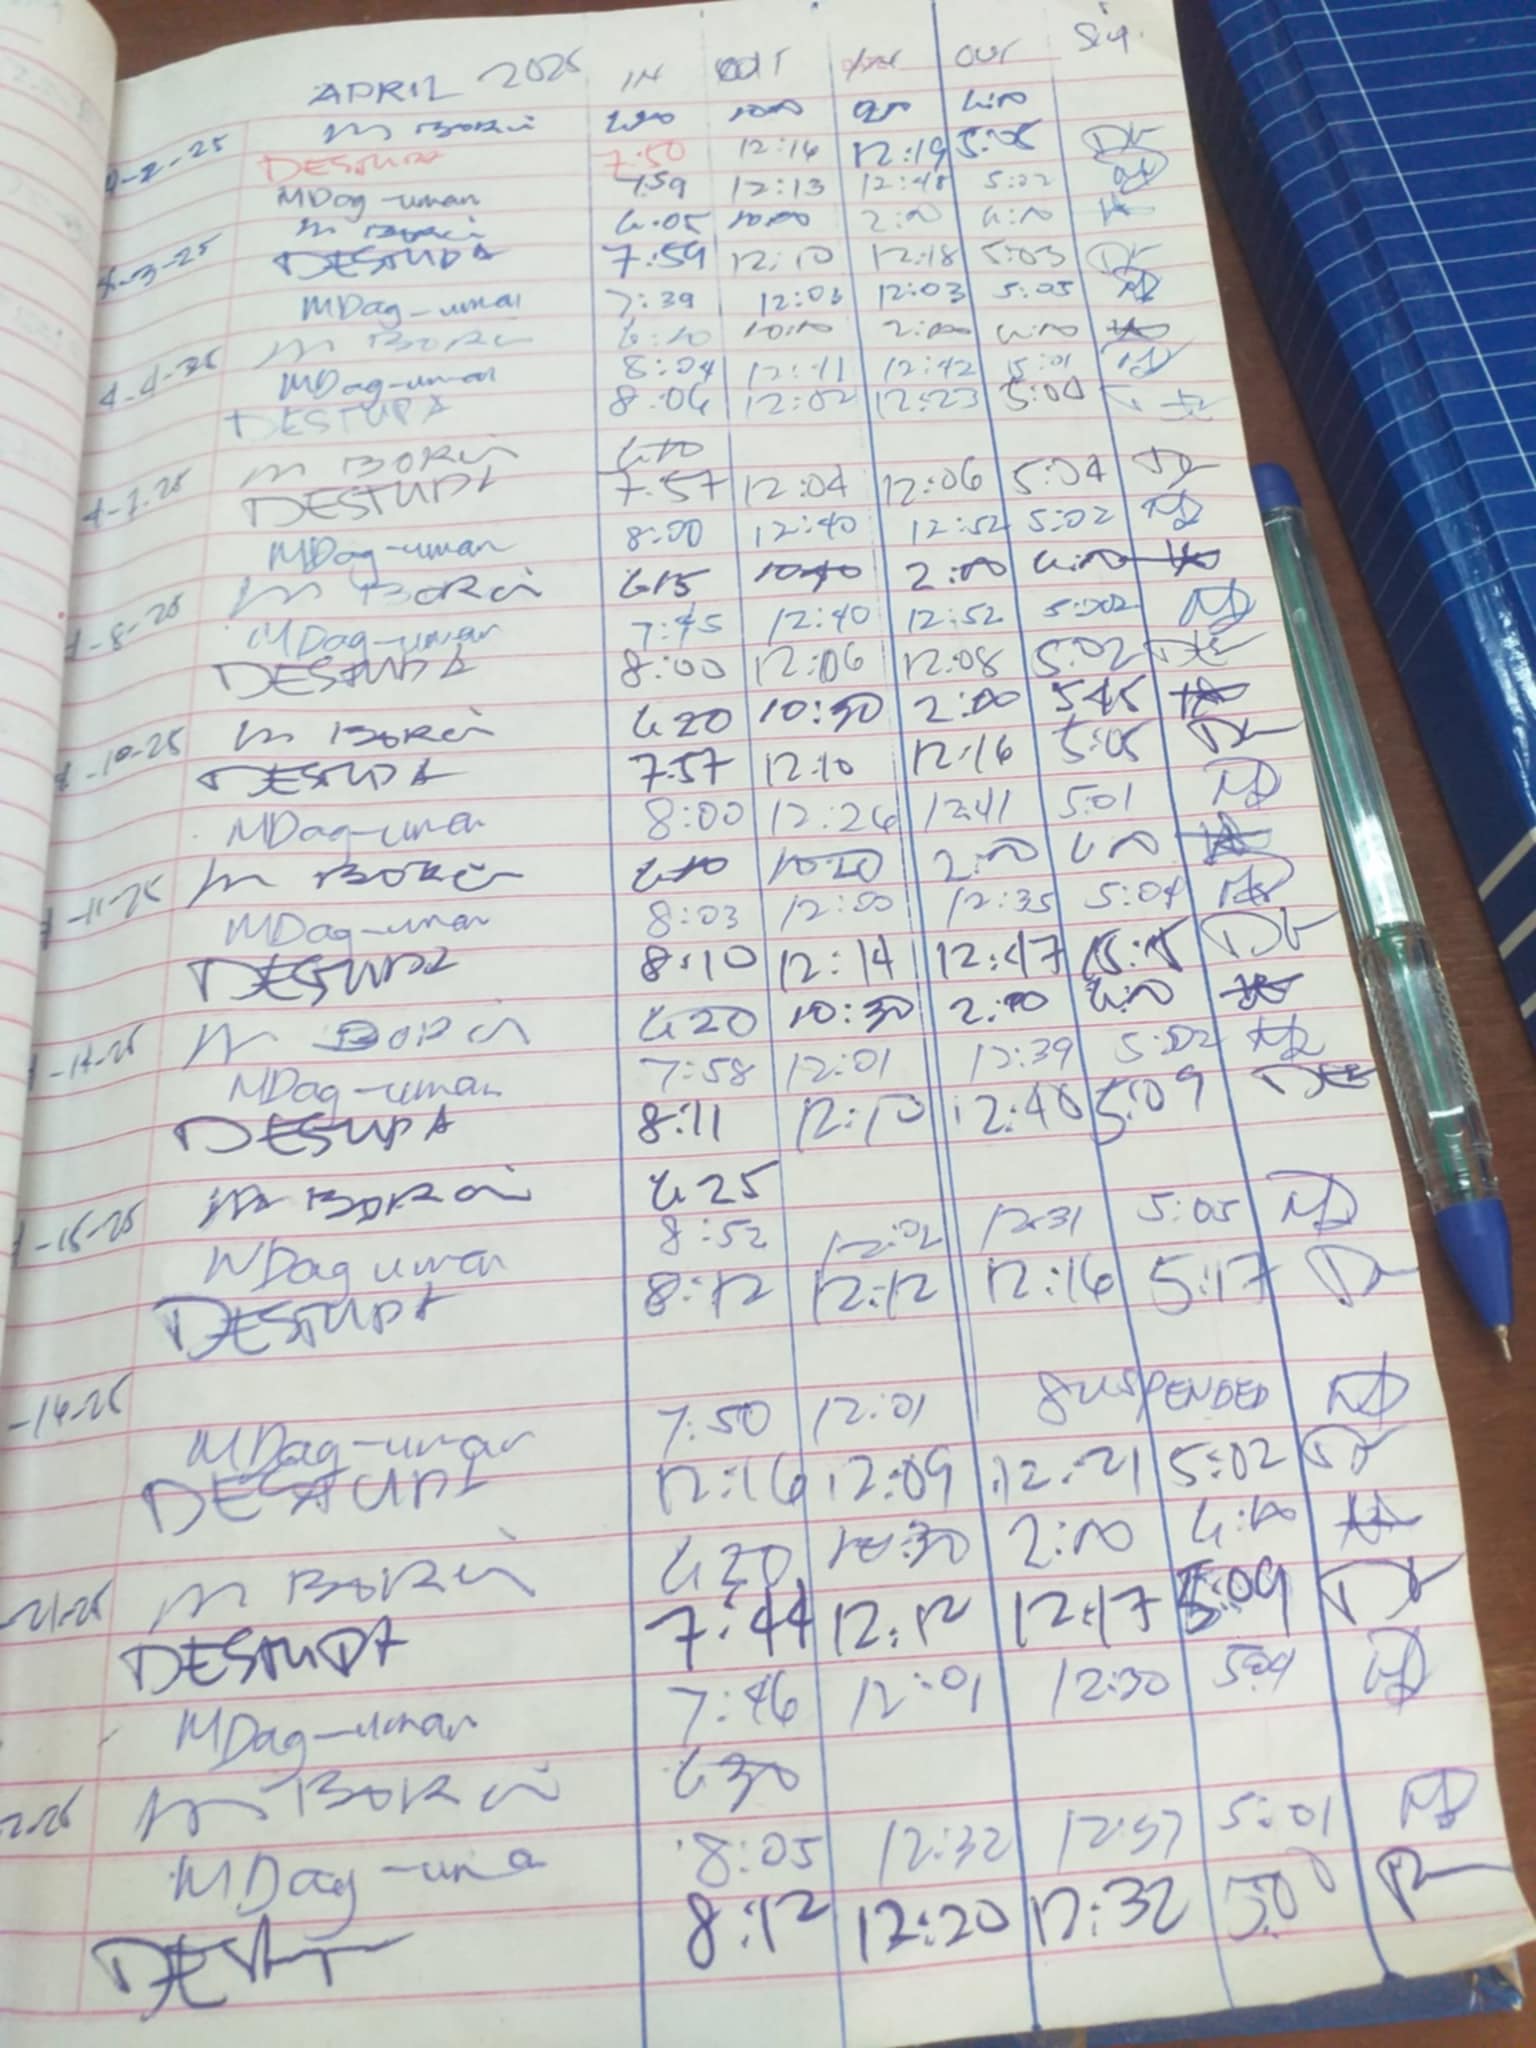 APRIL 2025 IN OUT IN OUT Sig.
4-2-25 M BORCi 6:00 4:00
DESTUPA 7:50 12:14 12:19 5:05
MDag-uman 7:59 12:13 12:48 5:02
4-3-25 M BORCi 6:05 10:00 2:00 4:00
DESTUPA 7:59 12:10 12:18 5:03
MDag-uman 7:39 12:03 12:03 5:05
4-4-25 M BORCi 6:10 10:10 2:00 4:00
MDag-uman 8:04 12:41 12:42 5:01
DESTUPA 8:06 12:02 12:23 5:00
4-7-25 M BORCi 6:10
DESTUPA 7:57 12:04 12:06 5:04
MDag-uman 8:00 12:40 12:52 5:02
4-8-25 M BORCi 6:15 2:00 4:00
MDag-uman 7:45 12:40 12:52 5:02
DESTUPA 8:00 12:06 12:08 5:02
4-10-25 M BORCi 6:20 10:30 2:00 5:45
DESTUPA 7:57 12:10 12:16 5:05
MDag-uman 8:00 12:26 12:41 5:01
4-11-25 M BORCi 6:10 10:20 2:00 4:00
MDag-uman 8:03 12:00 12:35 5:04
DESTUPA 8:10 12:14 12:47
4-14-25 M BORCi 6:20 10:30 2:00 4:00
MDag-uman 7:58 12:01 12:39 5:02
DESTUPA 8:11 12:10 12:40 5:09
4-15-25 M BORCi 6:25
MDag uman 8:52 12:02 12:31 5:05
DESTUPA 8:12 12:12 12:16 5:17
-16-25 MDag-uman 7:50 12:01 SUSPENDED
DESTUPA 12:16 12:09 12:21 5:02
-21-25 M BORCi 6:20 10:30 2:00 4:00
DESTUPA 7:44 12:12 12:17 5:09
MDag-uman 7:46 12:01 12:30 5:04
2-25 M BORCi 6:30
MDag-uma 8:05 12:32 12:37 5:01
DEST 8:12 12:20 12:32